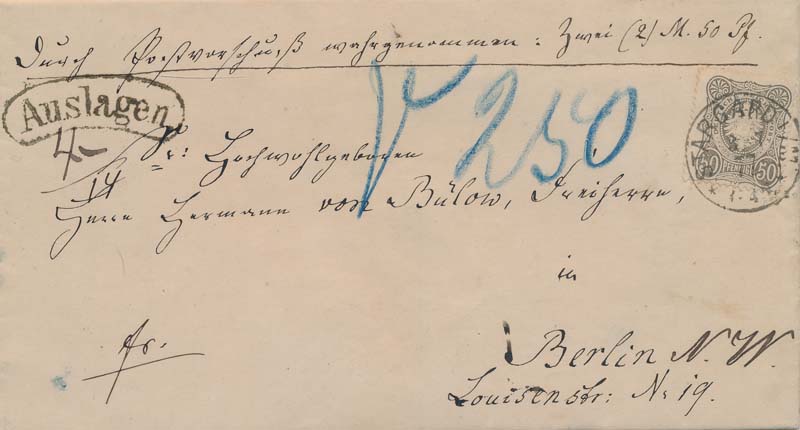 Durch Postvorschuß wahrgenommen: Zwei (2) M. 50 Pf.
Auslagen
250
Sr: Hochwohlgeboren
Herrn Hermann von Bülow, Freiherrn,
in
fr.
Berlin N. W.
Louisenstr: No 19.
STARGARD
50 PFENNIG 50